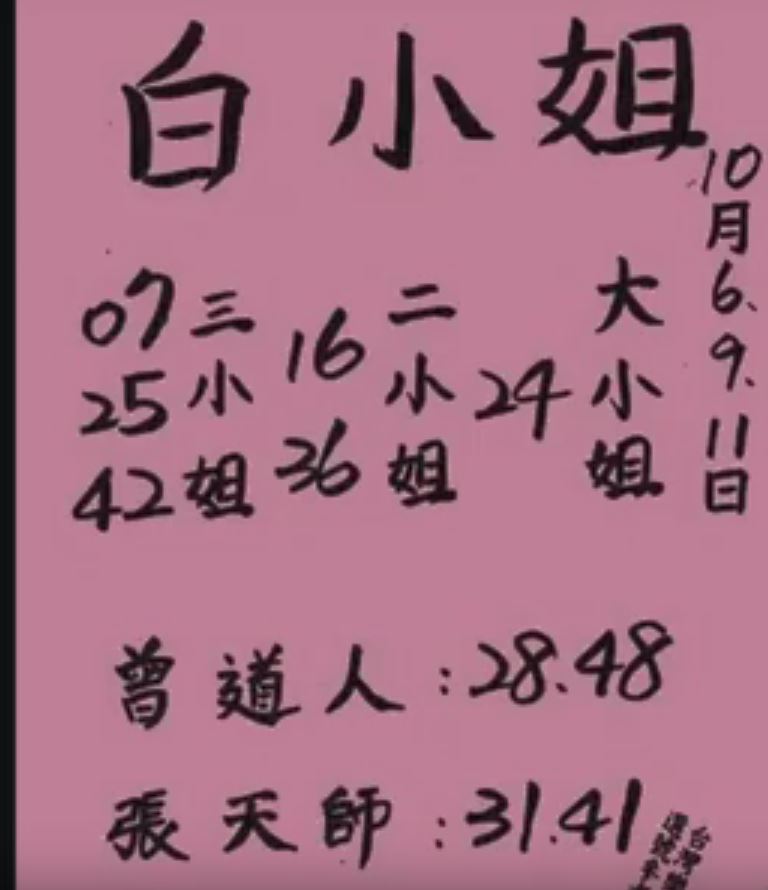 白小姐
10月6、9、11日
大小姐
24
二小姐
16
36
三小姐
07
25
42
曾道人:28.48
張天師:31.41